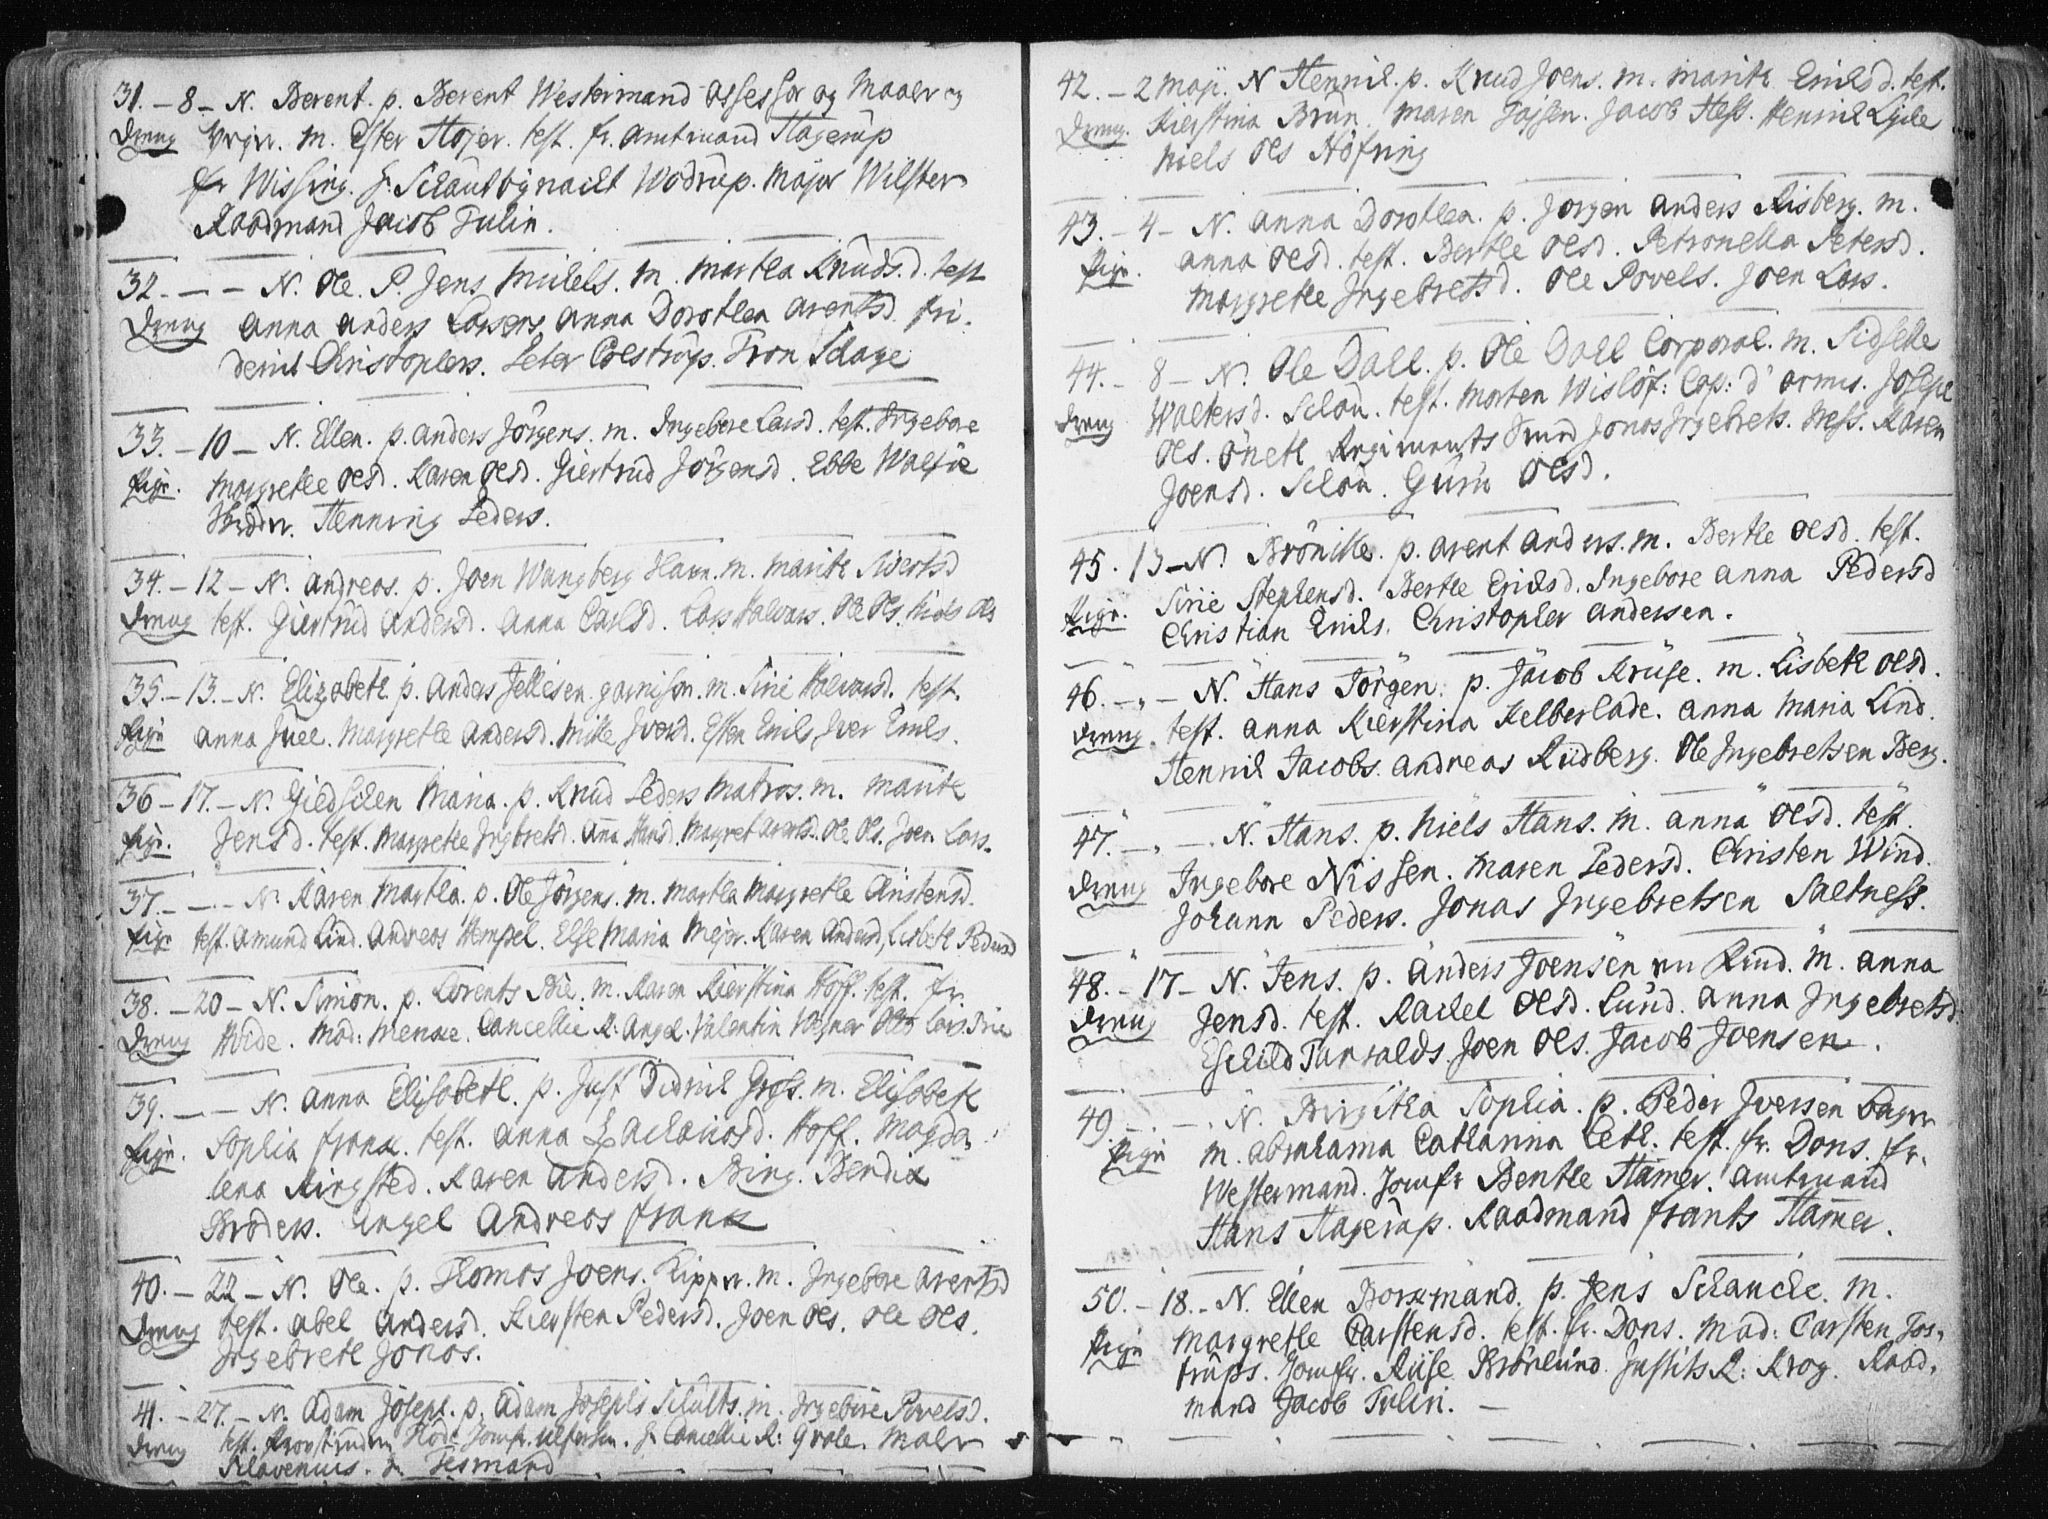 31. - 8 - N. Berent. p. Berent Westermand assessor og Maaler og
Dreng Vejer. m. Ester Höjer. test. fr. amtmand Hagerup
fr Wissing. H. Schautbÿnacht Wodrup. Major Wilster
Raadmand Jacob Tulin.
32. - - N. Ole. P. Jens Michels. m. Martha Knudsd. test
Dreng anna anders Larsens, anna Dorothea arentsd. fri.
derich Christophers. Peter Colstrup. Tron Schage
33. - 10 - N. Ellen. p. anders Jörgens. m. Ingebore Larsd. test. Ingebore
Pige. Margrethe olsd. Karen olsd. Giertrud Jörgensd. Ebbe
Henning Peders.
34. - 12 - N. andreas. p. Joen Wangberg m. Marith Siwertsd
Dreng test. Giertrud andersd. anna Carlsd. Lars Halvars. Ole Ols. Niels Ols
35. - 13. - N. Elizabeth. p. Anders Jellesen garnison. m. Sirie Halvarsd. test.
Pige anna Juel. Margrethe andersd. Mille Iversd. Esten Erichs. Iver Erichs.
36 - 17. - N. Giedschen Maria. p. Knud Peders Matros. m. Marith
Pige. Jensd. test. Margrethe Ingebretsd. Anna Hansd. Margret arentsd. Ole Ols. Joen Lars.
37. - - - N. Karen Martha. p. Ole Jörgens. m. Martha Margrethe Christensd.
Pige test. Amund Lind. Andreas Hempel. Else Maria Mejer. Karen Andersd, Lisbeth Pedersd
38. - 20 - N. Simon. p. Lorents Bie. m. Karen Kierstina Hoff. test. fr.
Dreng Hvide. Mad: Cancellie R: Angel. Valentin Wegner Lars Brie
39. - - N. Anna Elisabeth. p. Just Didrich Gross. m. Elisabeth
Pige. Sophia franck. test. anna Zachariasd. Hoff. Magda
lena Ringsted. Karen andersd. Bing. Bendix
Broders. angel Andreas franck
40. - 22 - N. Ole. p. Thomas Joens. m. Ingebore arentsd
Dreng test. abel andersd. Kiersten Pedersd. Joen ols. ole ols.
Ingebreth Jonas.
41. - 27. - N. Adam Joseph. p. Adam Josephs Schults. m. Ingebore Povelsd.
Dreng test. Jomfr. H. Cancellie R: Maler
Klavenius. Tesmand
42. - 2 Maji. N Henrich. p. Knud Joens. m. Marith Erichsd. test.
Dreng. Kierstina Brun. Maren Tassen. Jacob Hess. Henrich Lÿche
Niels Ols Höfring
43. - 4 - N. anna Dorothea. p. Jorgen anders Risberg. m.
Pige. anna olsd. test. Berthe olsd. Petronella Petersd.
Margrethe Ingebretsd. Ole Povels. Joen Lars.
44. - 8 - N. Ole Dahl. p. Ole Dahl Corporal. m. Sidselle
Dreng Woltersd. Schau. test. Morten Wislöf: Cap: d'armis. Joseph
Ols. Regiments Jonas Ingebrets. Hess. Karen
Joensd. Schau. Guru Olsd.
45. 13 - N. Brönille. p. arent anders. m. Berthe olsd. test.
Pige. Sirie Stephensd. Berthe Erichsd. Ingebore anna Pedersd
Christian Erichs. Christopher andersen.
46. - " - N. Hans Jörgen. p. Jacob Kruse. m. Lisbeth olsd.
Dreng. test. anna Kierstina Kelberlade. anna Maria Lind.
Henrich Jacobs. andreas Rudberg. Ole Ingebretsen Berg.
47. - " - N. Hans. p. Niels Hans. m. anna olsd. test.
Dreng Ingebore Nissen. Maren Pedersd. Christen Wind.
Johann Peders. Jonas Ingebretsen Saltness.
48. - 17 - N. Jens. p. anders Joensen m. anna
Dreng Jensd. test. Rachel Olsd. Lund. anna Ingebretsd.
Eschild Joen Ols. Jacob Joensen.
49. - . - . N. Birgitha Sophia. p. Peder Iversen Bager
Pige m. abrahama Catharina test. fr. Dons. fr.
Westermand. Jomfr Benthe Hamer. amtmand
Hans Hagerup. Raadmand frants Hamer.
50. - 18. - N. Ellen Borkmand. p. Jens Schanche. m.
Pige Margrethe Carstensd. test. fr. Dons. Mad: Carsten Jos=
trups. Jomfr. Brönlund. Justits R: Krog. Raad=
mand Jacob Tulin. -